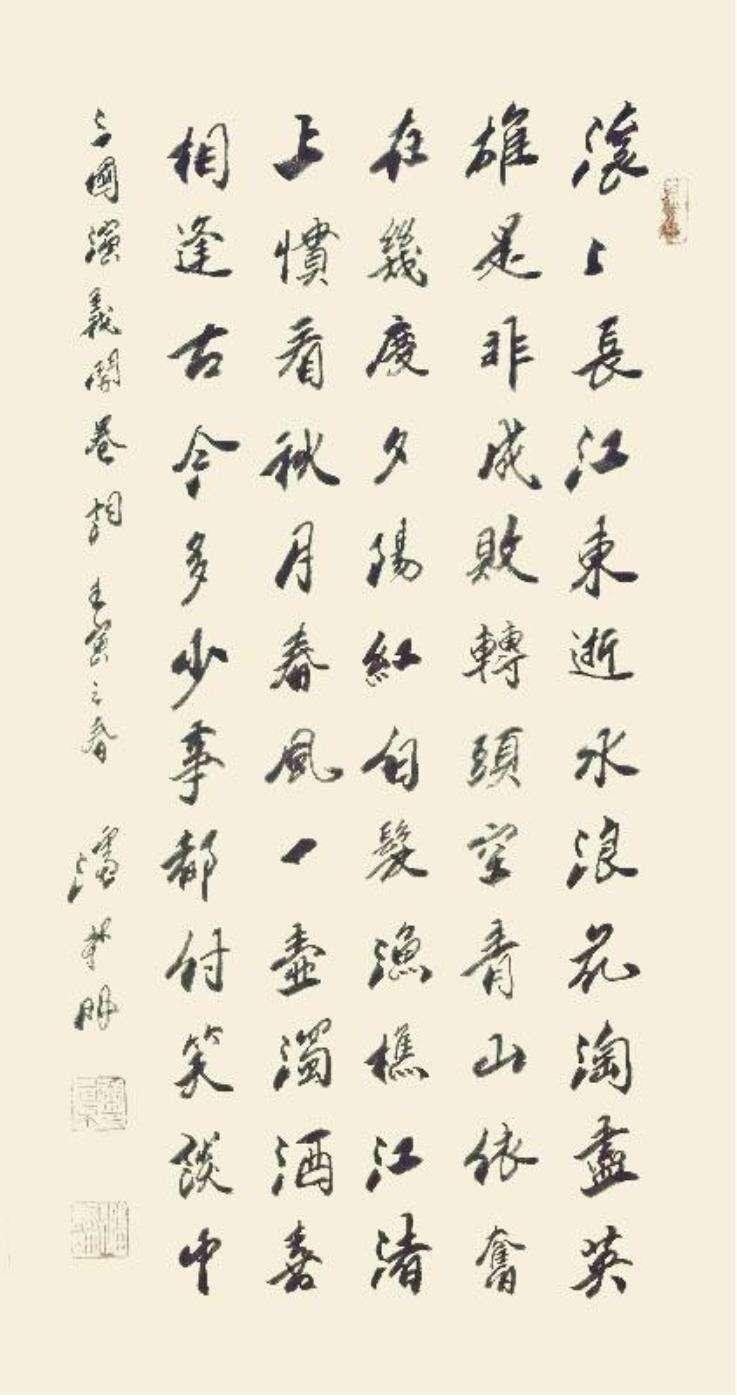 滚々長江東逝水浪花淘盡英
雄是非成敗轉頭空青山依舊
在幾度夕陽紅白髮漁樵江渚
上慣看秋月春風一壺濁酒喜
相逢古今多少事都付笑談中
三國演義開卷詞 壬寅之春 潘明